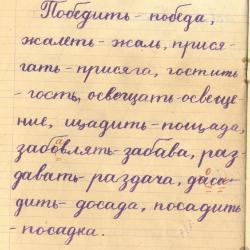 Победить - победа,
жалеть - жаль, прися-
гать - присяга, гостить
- гость, освещать - освеще
ние, щадить - пощада,
забовлять - забава, раз
давать - раздача, даса-
дить - досада, посадить
- посадка.